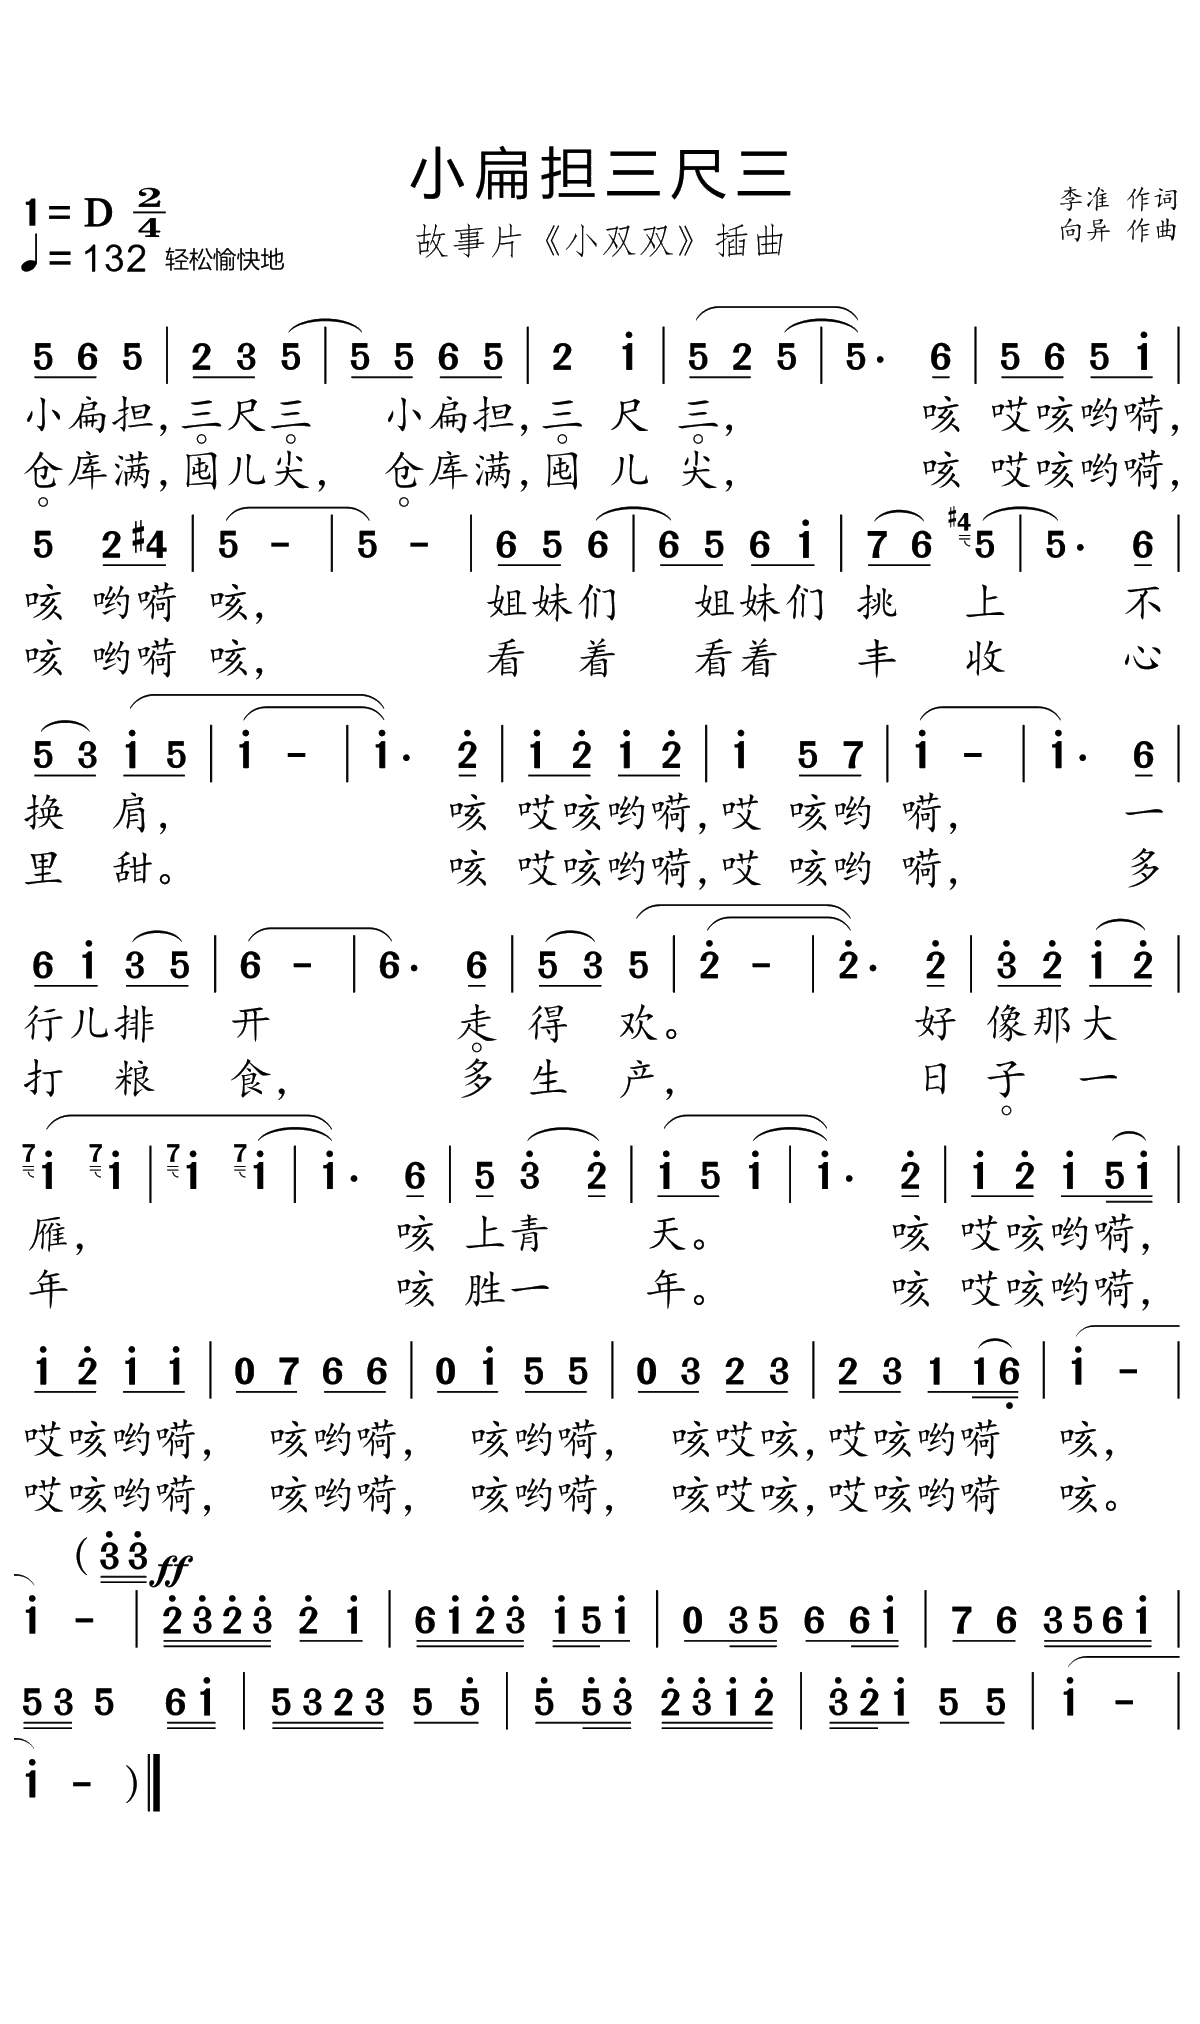 小扁担三尺三
1= D 2/4
李准 作词
故事片《小双双》插曲
向异 作曲
♩= 132 轻松愉快地
5 6 5 | 2 3 5 | 5 5 6 5 | 2 i | 5 2 5 | 5· 6 | 5 6 5 i |
小扁担,三尺三 小扁担,三 尺 三, 咳 哎咳哟嗬,
仓库满,囤儿尖, 仓库满,囤 儿 尖, 咳 哎咳哟嗬,
5 2 #4 | 5 - | 5 - | 6 5 6 | 6 5 6 i | 7 6 #4 5 | 5· 6 |
咳 哟嗬 咳, 姐妹们 姐妹们 挑 上 不
咳 哟嗬 咳, 看 着 看着 丰 收 心
5 3 i 5 | i - | i· 2̇ | i 2̇ i 2̇ | i 5 7 | i - | i· 6 |
换 肩, 咳 哎咳哟嗬,哎 咳哟 嗬, 一
里 甜。 咳 哎咳哟嗬,哎 咳哟 嗬, 多
6 i 3 5 | 6 - | 6· 6 | 5 3 5 | 2̇ - | 2̇· 2̇ | 3̇ 2̇ i 2̇ |
行儿排 开 走 得 欢。 好 像那大
打 粮 食, 多 生 产, 日 子 一
7 i 7 i | 7 i 7 i | i· 6 | 5 3̇ 2̇ | i 5 i | i· 2̇ | i 2̇ i 5 i |
雁, 咳 上青 天。 咳 哎咳哟嗬,
年 咳 胜一 年。 咳 哎咳哟嗬,
i 2̇ i i | 0 7 6 6 | 0 i 5 5 | 0 3 2 3 | 2 3 1 1 6̣ | i - |
哎咳哟嗬, 咳哟嗬, 咳哟嗬, 咳哎咳,哎咳哟嗬 咳,
哎咳哟嗬, 咳哟嗬, 咳哟嗬, 咳哎咳,哎咳哟嗬 咳。
( 3̇ 3̇ ff
i - | 2̇ 3̇ 2̇ 3̇ 2̇ i | 6 i 2̇ 3̇ i 5 i | 0 3 5 6 6 i | 7 6 3 5 6 i |
5 3 5 6 i | 5 3 2 3 5 5̇ | 5 5̇ 3̇ 2̇ 3̇ i 2̇ | 3̇ 2̇ i 5 5 | i - |
i - )